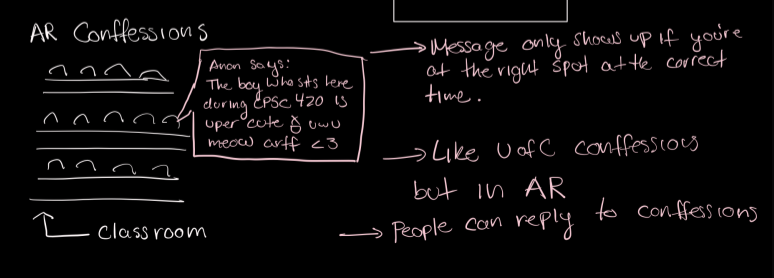 AR Conffessions
Anon says:
The boy who sits here
during CPSC 420 is
uper cute uwu
meow arff <3
→ Message only shows up if you're
at the right spot at the correct
time.
→ Like UofC conffessions
but in AR
→ People can reply to conffessions
classroom